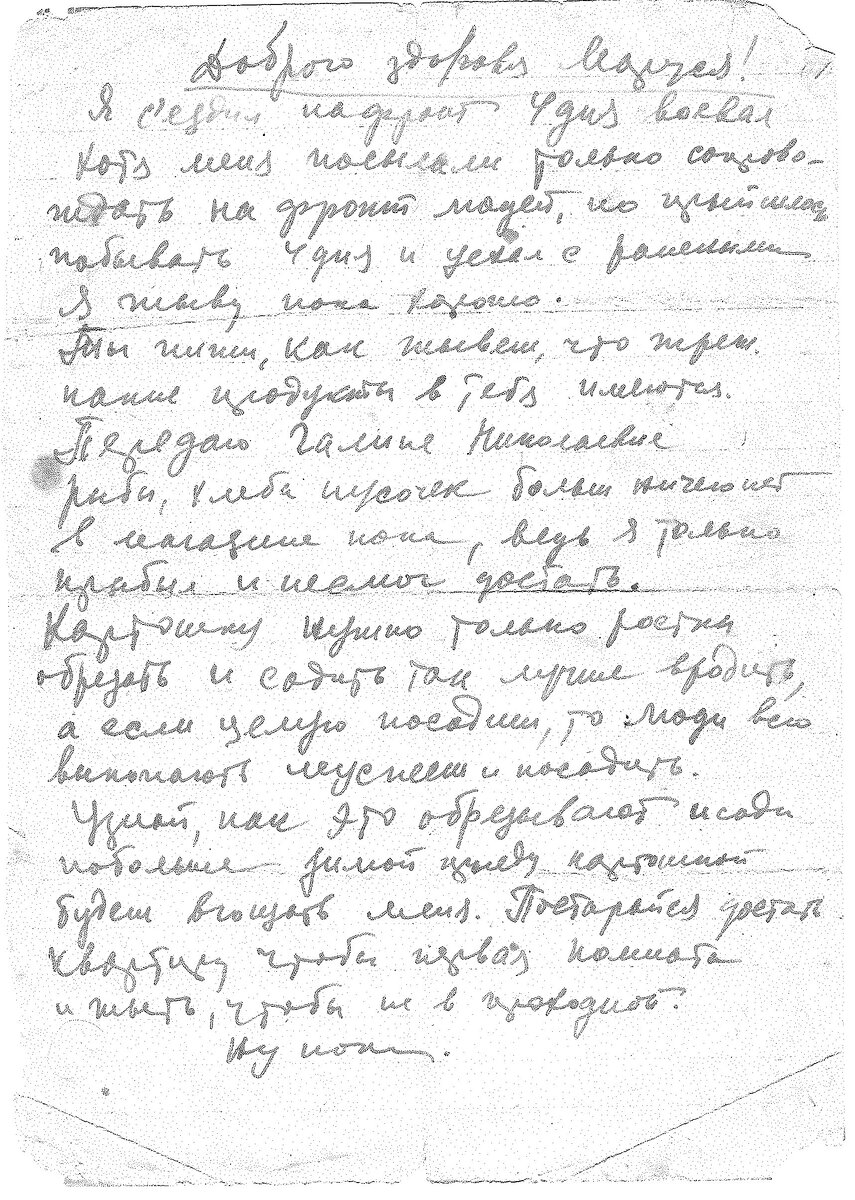 Доброго здоровя Маруся!
Я с'ездил на фронт 4 дня воевал
хотя меня посылали только сопрово-
ждать на фронт людей, но прыйшлось
побывать 4 дня и уехал с ранеными
Я жыву пока хорошо.
Ты пиши, как жывеш, что жреш.
какие продукты в тебя имеются.
Передаю Галине Николаевне
рыбы, хлеба кусочек больш ничего нет
в магазине пока, ведь я только
прыбыл и несмог достать.
Картошку нужно только ростки
обрезать и садить так лучше вродить,
а если целую посадиш, то люди всю
выкопають неуспееш и посадить.
Узнай, как это обрезывают и сади
побольше зимой прыеду картошкой
будеш вгощать меня. Постарайся достать
квартиру чтобы первая комната
и жыть, чтобы не в проходной.
Ну пока.